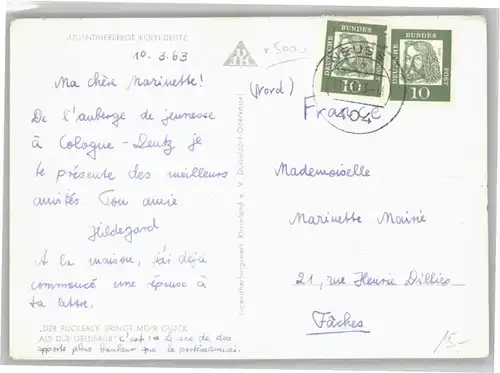 JUGENDHERBERGE KÖLN-DEUTZ
10. 3. 63
Ma chère Marinette!
De l'auberge de jeunesse
à Cologne-Deutz je
te présente des meilleurs
amitiés. Ton amie
Hildegard
À la maison, j'ai déjà
commencé une réponse à
ta lettre.
"DER RUCKSACK BRINGT MEHR GLÜCK
ALS DER GELDSACK" c'est: le sac de dos
apporte plus bonheur que le portemonnaie.
Jugendherbergswerk Rheinland e. V. Düsseldorf-Oberkassel
DEUTSCHE BUNDESPOST
10
DEUTSCHE BUNDESPOST
10
NEUSS
404
(Nord) France
Mademoiselle
Marinette Mairie
21, rue Henrie Dillies
Fâches
15,-